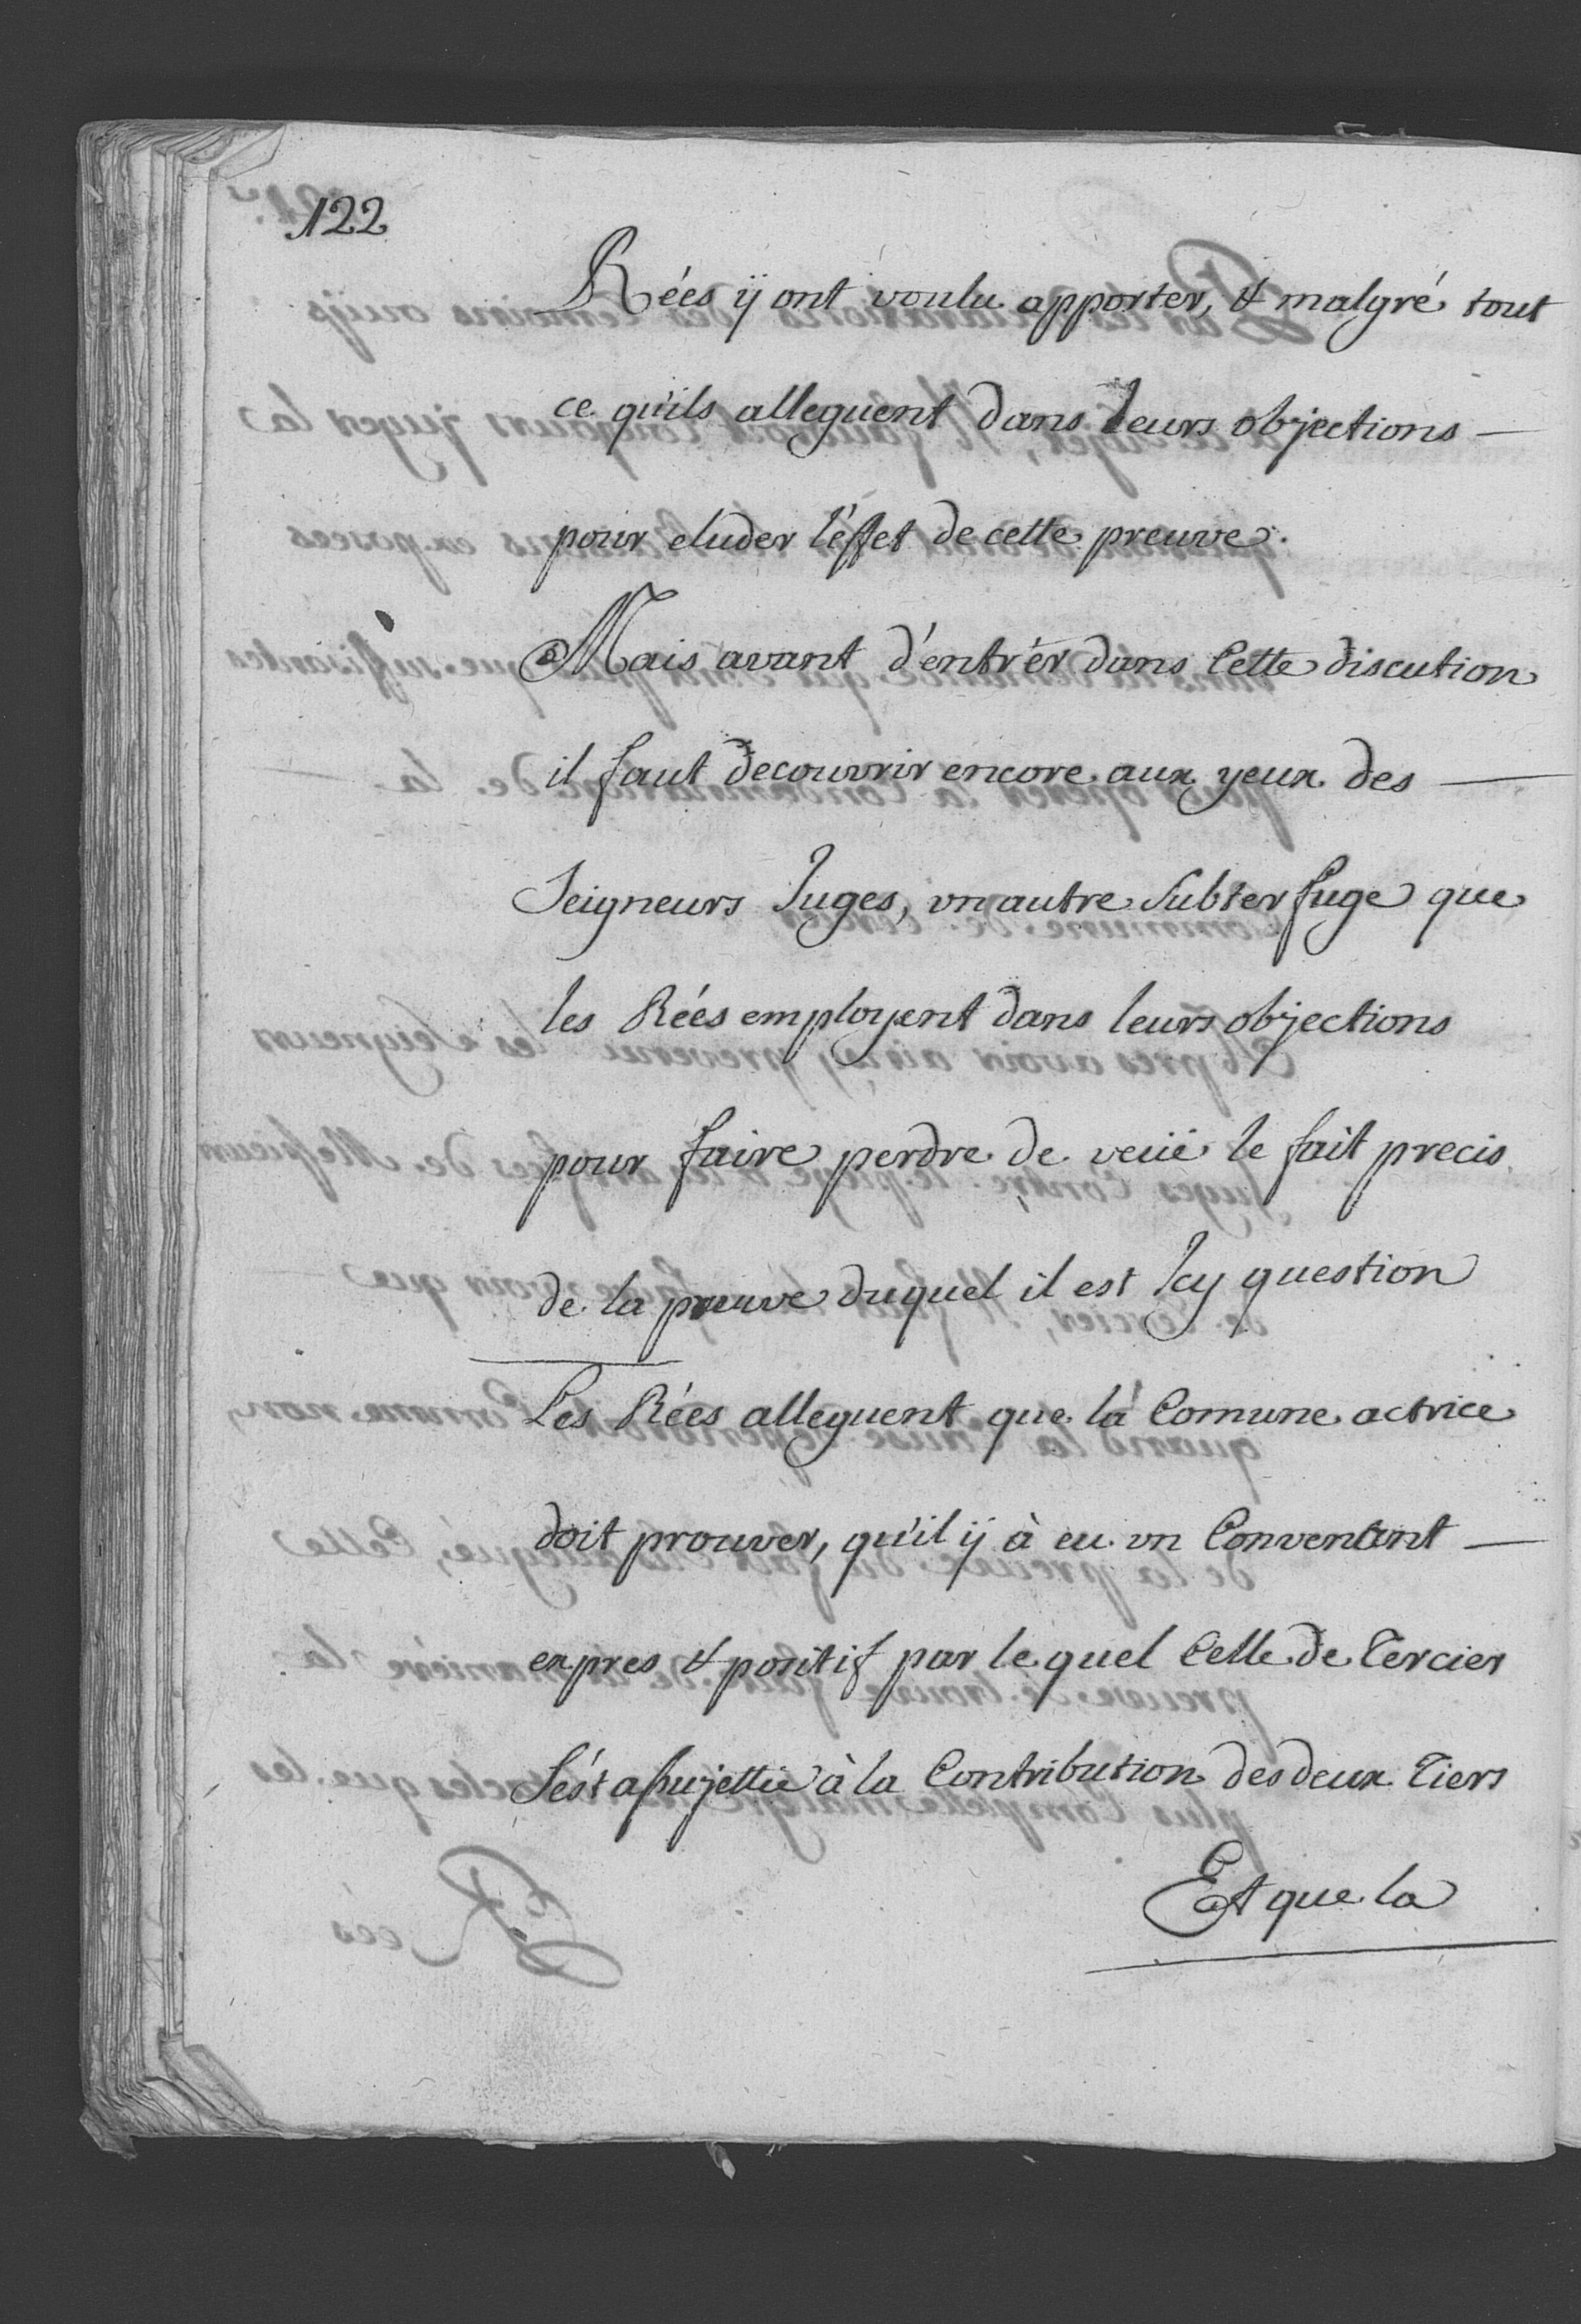 122
Rées ÿ ont voulu apporter, & malgré tout
ce qu'ils alleguent dans leurs objections —
pour eluder l'éffet de cette preuve.
Mais avant d'entrér dans Cette discution
il faut decouvrir encore aux yeux des —
Seigneurs Juges, vn autre Subterfuge que
les Rées employent dans leurs objections
pour faire perdre de veüe le fait precis
de la preuve duquel il est Icy question
Les Rées alleguent que la Comune actrice
doit prouver, qu'il ÿ à eu vn Convenant —
expres & positif par le quel Celle de Tercier
S'est assujettie à la Contribution des deux Tiers
Et que la